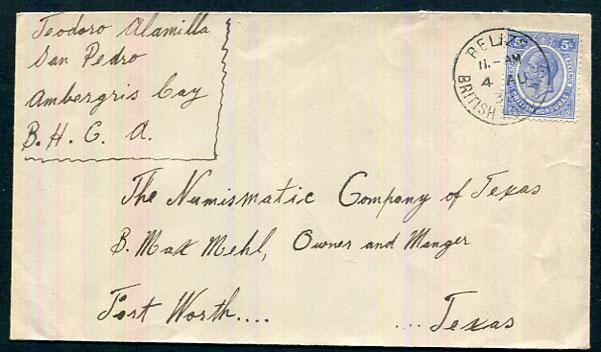 Teodoro Alamilla
San Pedro
Ambergris Cay
B. H. C. A.
BELIZE
11-AM
4 AU
BRITISH
5c
BRITISH HONDURAS
The Numismatic Company of Texas
B. Max Mehl, Owner and Manger
Fort Worth.... ... Texas